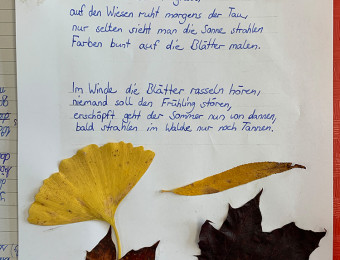 auf den Wiesen ruht morgens der Tau,
nur selten sieht man die Sonne strahlen
Farben bunt auf die Blätter malen.
Im Winde die Blätter rasseln hören,
niemand soll den Frühling stören,
erschöpft geht der Sommer nun von dannen,
bald strahlen im Walde nur noch Tannen.